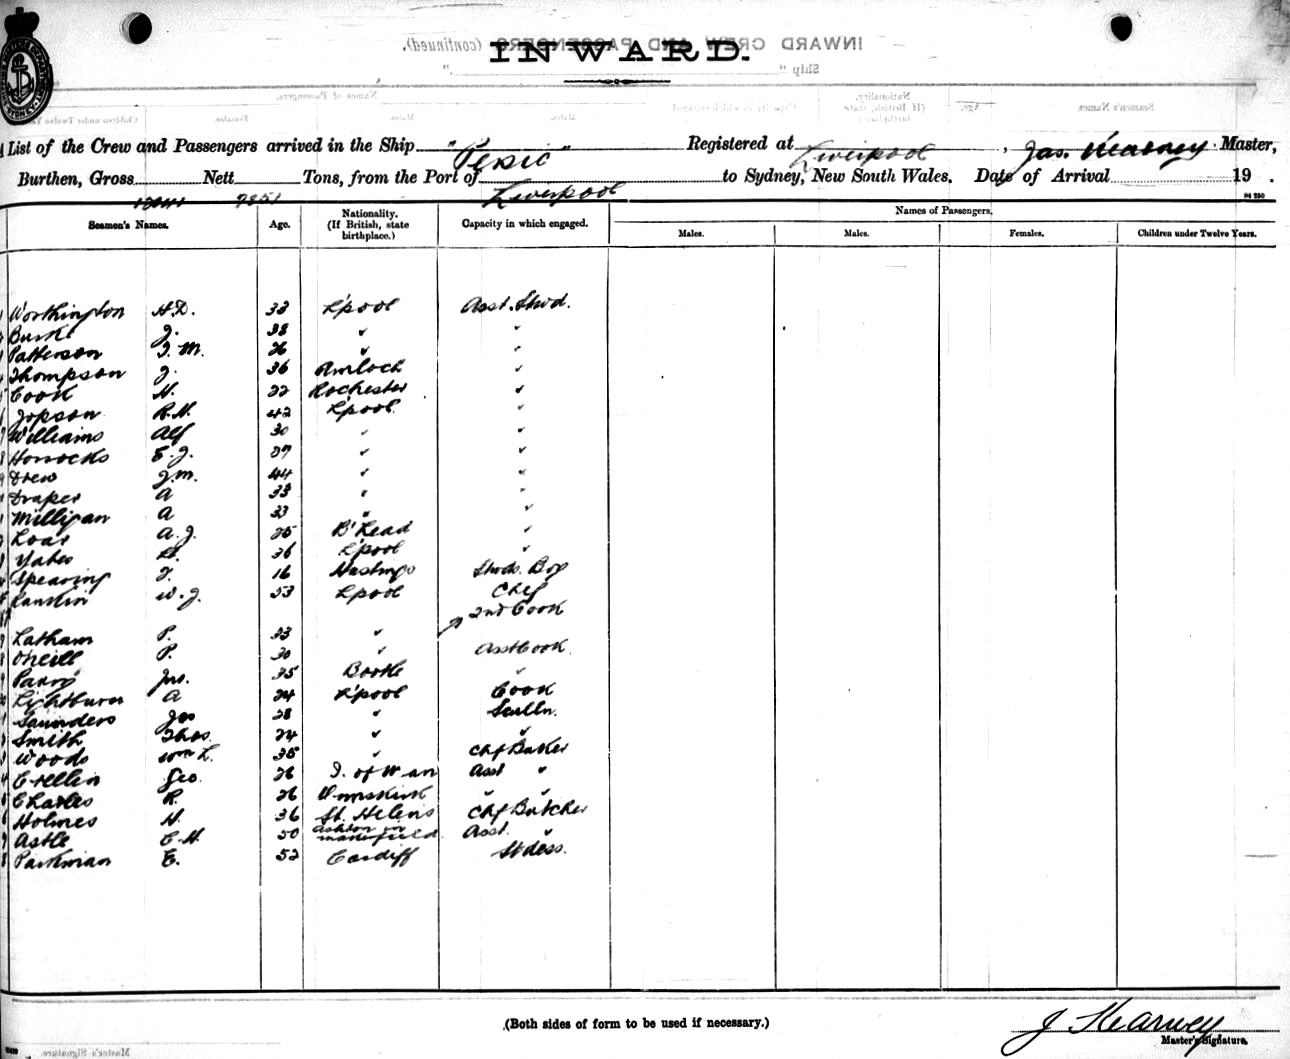 INWARD.
List of the Crew and Passengers arrived in the Ship "Persic" Registered at Liverpool, Jas. Kearney Master,
Burthen, Gross 12041 Nett 7851 Tons, from the Port of Liverpool to Sydney, New South Wales. Date of Arrival 19 .
Seamen's Names. Age. Nationality. (If British, state birthplace.) Capacity in which engaged. Names of Passengers.
Males. Males. Females. Children under Twelve Years.
Worthington H.D. 33 L'pool Asst. Stwd.
Burke J. 38 " "
Patterson J. M. 26 " "
Thompson J. 36 Amloch "
Cook H. 22 Rochester "
Jopson R.H. 42 L'pool "
Williams Alf 30 " "
Horrocks E. J. 27 " "
Drew J.M. 44 " "
Draper A 33 " "
Milligan A 33 " "
A.J. 25 B'head "
Yates 26 L'pool "
Spearing J. 16 Hastings Stwds. Boy
Rankin W.J. 53 L'pool Chef
2nd Cook
Latham P. 33 "
O'Neill P. 30 " Asst Cook
Parry Jno. 25 Bootle "
Lightburn A 24 L'pool Cook
Saunders Jas 28 " Sculln.
Smith Thos. 24 " "
Woods Wm L. 35 " Chf Baker
Crellin Geo. 26 I. of Man Asst "
Charles R. 26 Ormskirk " "
Holmes H. 36 St. Helens Chf Butcher
Astle E.H. 50 Ashton in Makerfield Asst. "
Parkman E. 52 Cardiff Stdess.
(Both sides of form to be used if necessary.)
J Kearney
Master's Signature.